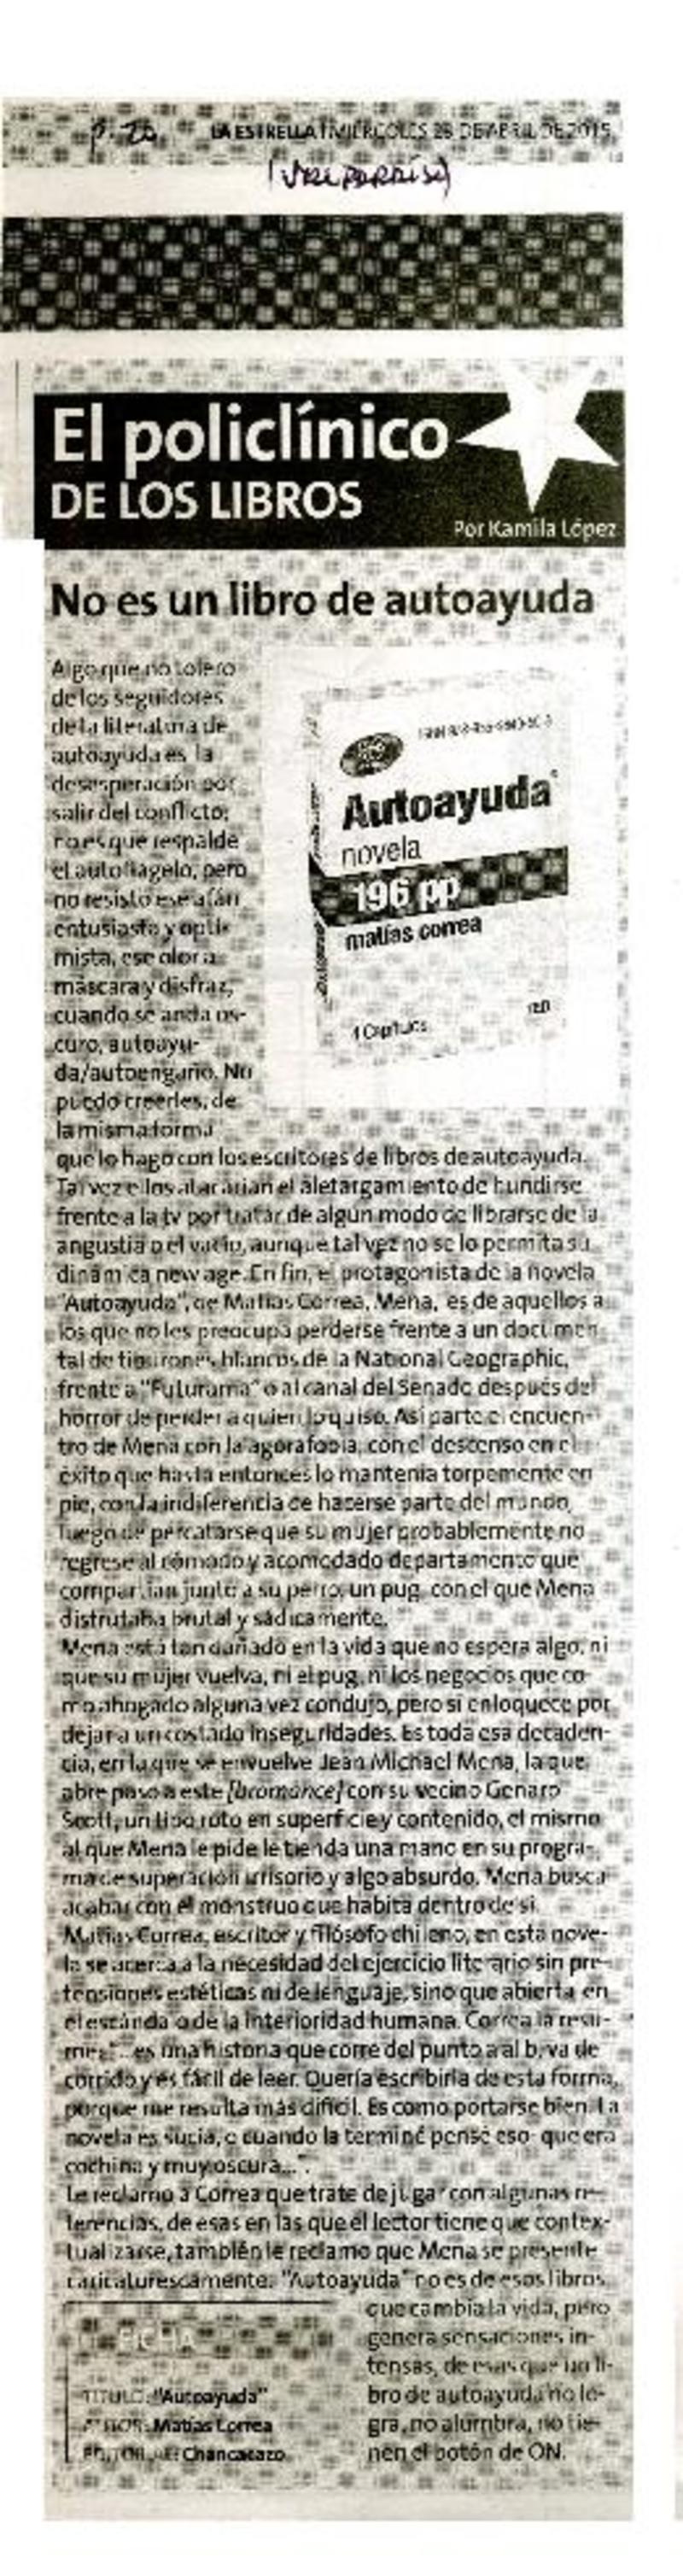 p. 20. LA ESTRELLA | MIÉRCOLES 28 DE ABRIL DE 2015
(Valparaíso)
El policlínico
DE LOS LIBROS
Por Kamila López
No es un libro de autoayuda
Algo que no tolero
de los seguidores
de la literatura de
autoayuda es la
desesperación por
salir del conflicto;
no es que respalde
el autoflagelo, pero
no resisto ese afán
entusiasta y opti-
mista, ese olor a
máscara y disfraz,
cuando se anda os-
curo, autoayu-
da/autoengaño. No
puedo creerles, de
la misma forma
Autoayuda
novela
196 pp
matías correa
4 Capítulos
que lo hago con los escritores de libros de autoayuda.
Tal vez ellos atacarían el aletargamiento de hundirse
frente a la tv por tratar de algún modo de librarse de la
angustia o el vacío, aunque tal vez no se lo permita su
dinámica new age. En fin, el protagonista de la novela
"Autoayuda", de Matías Correa, Mena, es de aquellos a
los que no les preocupa perderse frente a un documen-
tal de tiburones blancos de la National Geographic,
frente a "Futurama" o al canal del Senado después del
horror de perder a quien lo quiso. Así parte el encuen-
tro de Mena con la agorafobia, con el descenso en el
éxito que hasta entonces lo mantenía torpemente en
pie, con la indiferencia de hacerse parte del mundo,
luego de percatarse que su mujer probablemente no
regrese al cómodo y acomodado departamento que
compartían junto a su perro, un pug, con el que Mena
disfrutaba brutal y sádicamente.
Mena está tan dañado en la vida que no espera algo, ni
que su mujer vuelva, ni el pug, ni los negocios que co-
mo ahogado alguna vez condujo, pero sí enloquece por
dejar a un costado inseguridades. Es toda esa decaden-
cia, en la que se envuelve Jean Michael Mena, la que
abre paso a este [bromance] con su vecino Genaro
Scott, un tipo roto en superficie y contenido, el mismo
al que Mena le pide le tienda una mano en su progra-
ma de superación irrisorio y algo absurdo. Mena busca
acabar con el monstruo que habita dentro de sí.
Matías Correa, escritor y filósofo chileno, en esta nove-
la se acerca a la necesidad del ejercicio literario sin pre-
tensiones estéticas ni de lenguaje, sino que abierta en
el escándalo de la interioridad humana. Correa la resu-
me: "...es una historia que corre del punto a al b, va de
corrido y es fácil de leer. Quería escribirla de esta forma,
porque me resulta más difícil. Es como portarse bien. La
novela es sucia, o cuando la terminé pensé eso: que era
cochina y muy oscura...".
Le reclamo a Correa que trate de jugar con algunas re-
ferencias, de esas en las que el lector tiene que contex-
tualizarse, también le reclamo que Mena se presente
caricaturescamente. "Autoayuda" no es de esos libros
que cambia la vida, pero
genera sensaciones in-
tensas, de esas que un li-
bro de autoayuda no lo-
gra, no alumbra, no tie-
nen el botón de ON.
FICHA
TÍTULO: "Autoayuda"
AUTOR: Matías Correa
EDITORIAL: Chancacazo